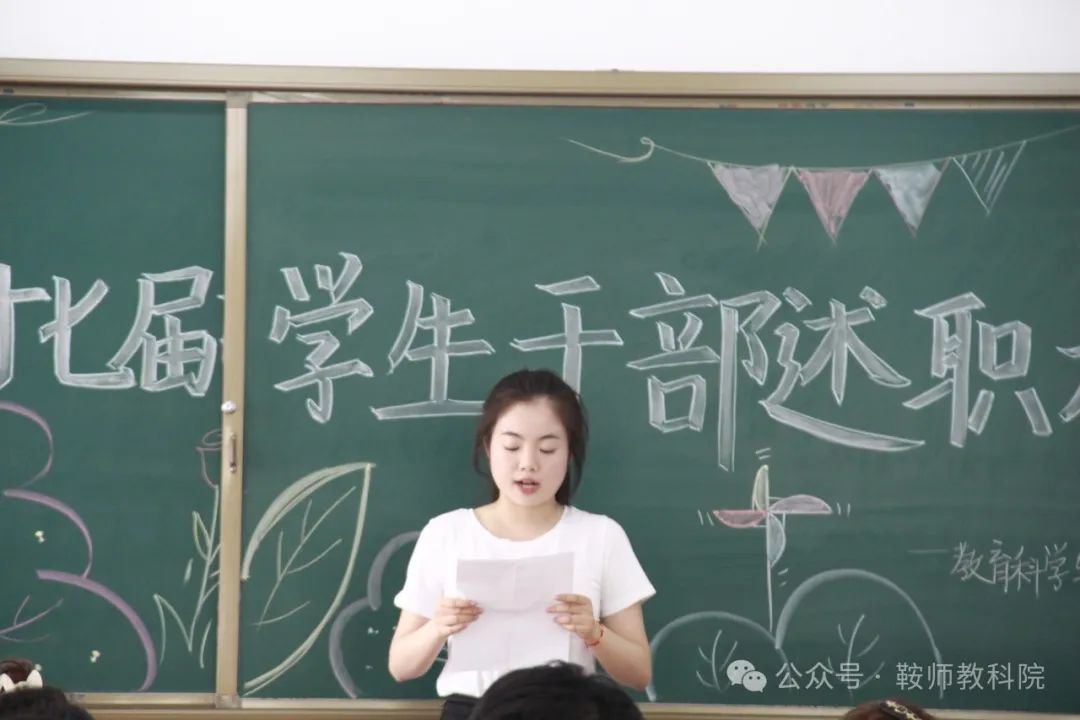 七届学生干部述职
教育科学
公众号 · 鞍师教科院